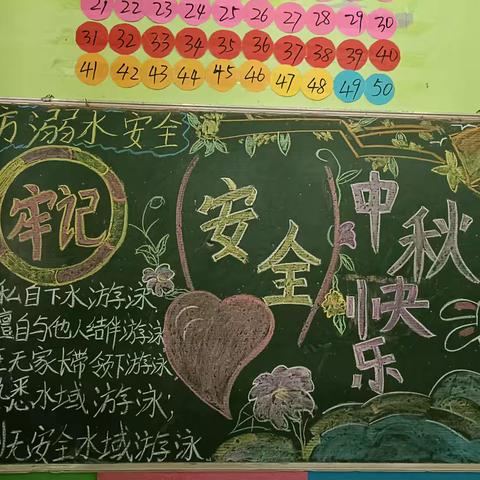 21 22 23 24 25 26 27 28 29 30
31 32 33 34 35 36 37 38 39 40
41 42 43 44 45 46 47 48 49 50
溺水安全
牢记
私自下水游泳
擅自与他人结伴游泳
无家长带领下游泳
悉水域游泳;
无安全水域游泳
安全
中秋
快乐